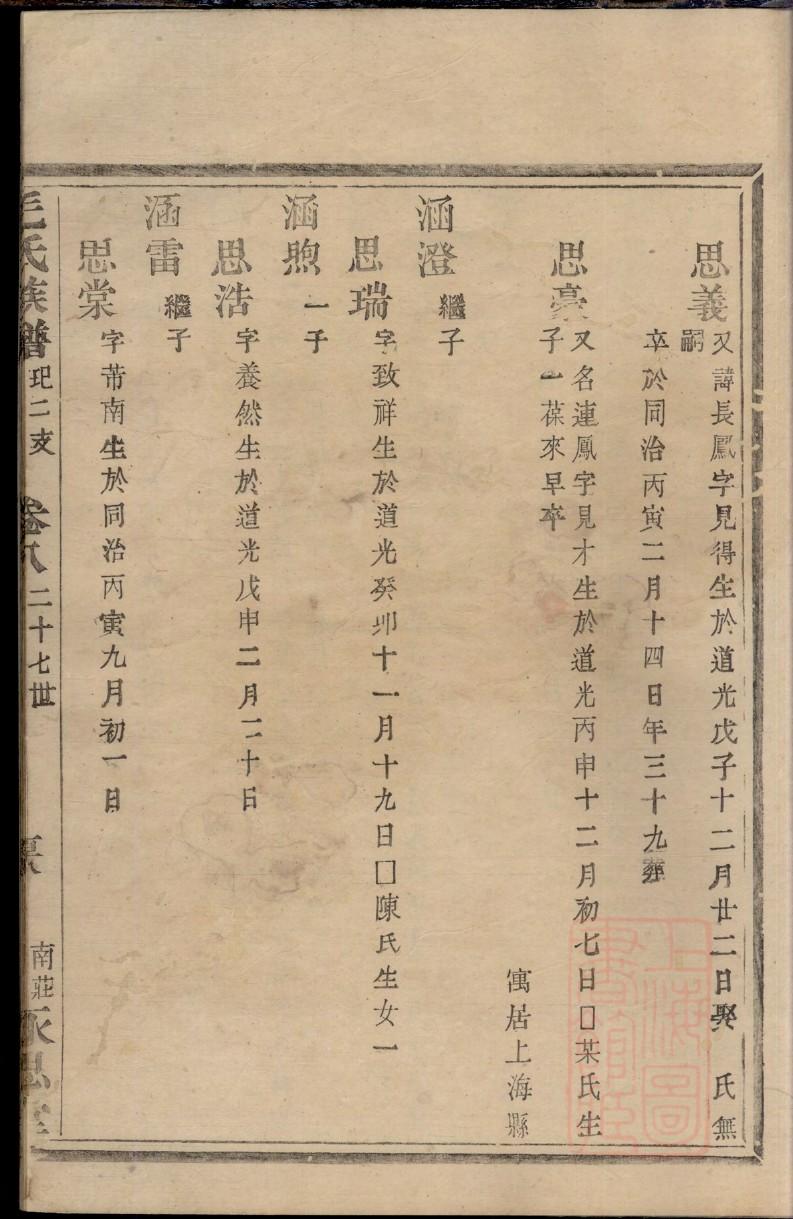 思義又諱長鳳字見得生於道光戊子十二月廿二日娶 氏無
嗣
卒於同治丙寅二月十四日年三十九葬
思豪又名連鳳字見才生於道光丙申十二月初七日□某氏生
子一葆來早卒
寓居上海縣
涵澄繼子
思瑞字致祥生於道光癸卯十一月十九日□陳氏生女一
涵煦一子
思浩字養然生於道光戊申二月二十日
涵雷繼子
思棠字芾南生於同治丙寅九月初一日
毛氏族譜 玘二支 卷八 二十七世 南莊 永思堂
上海圖書館藏